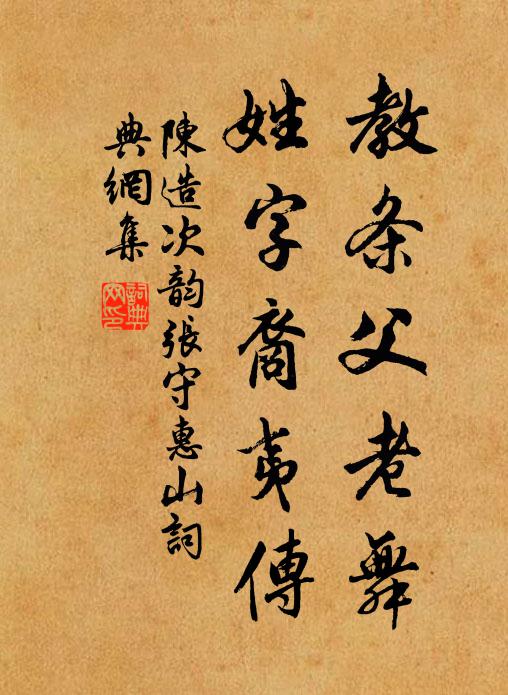 教条父老舞
姓字裔夷傳
陳造次韵張守惠山詞
典網集
詞典網印